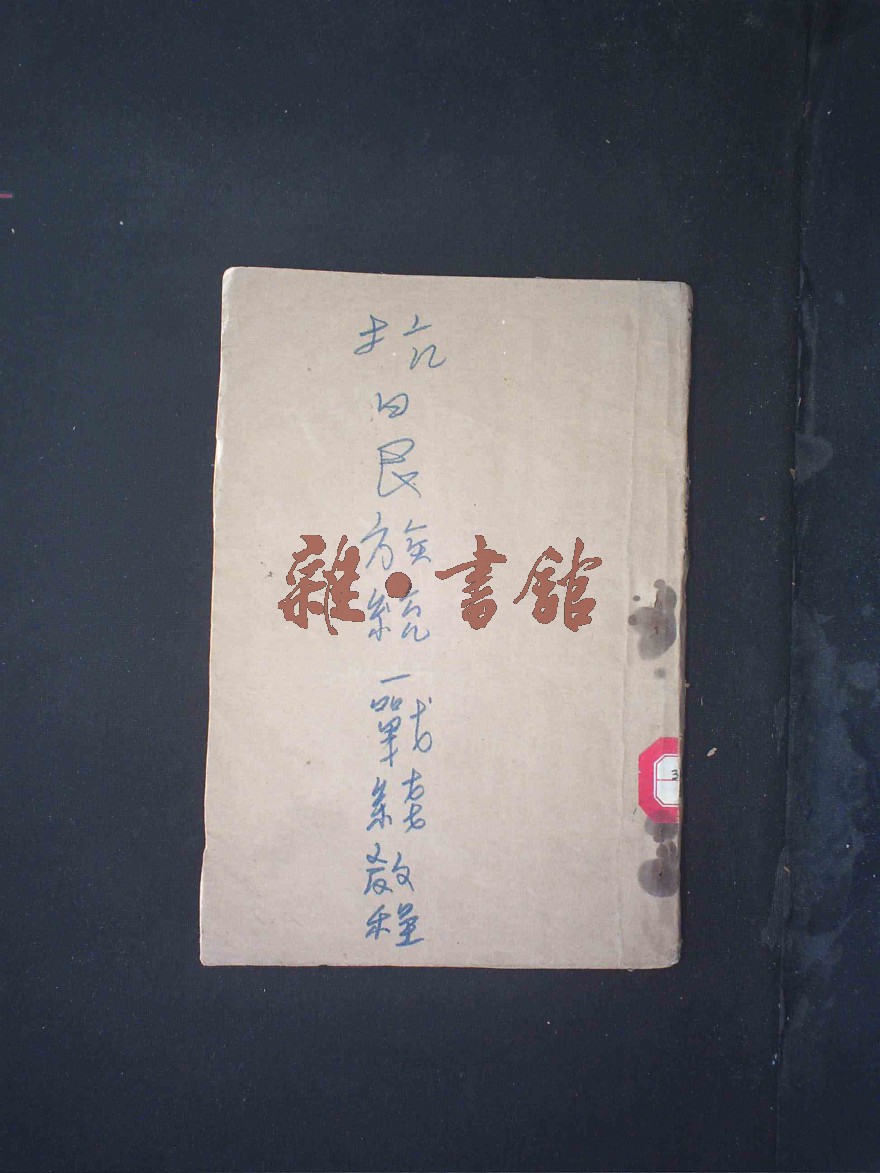 抗日民族統一戰綫教程
雜·書舘
3